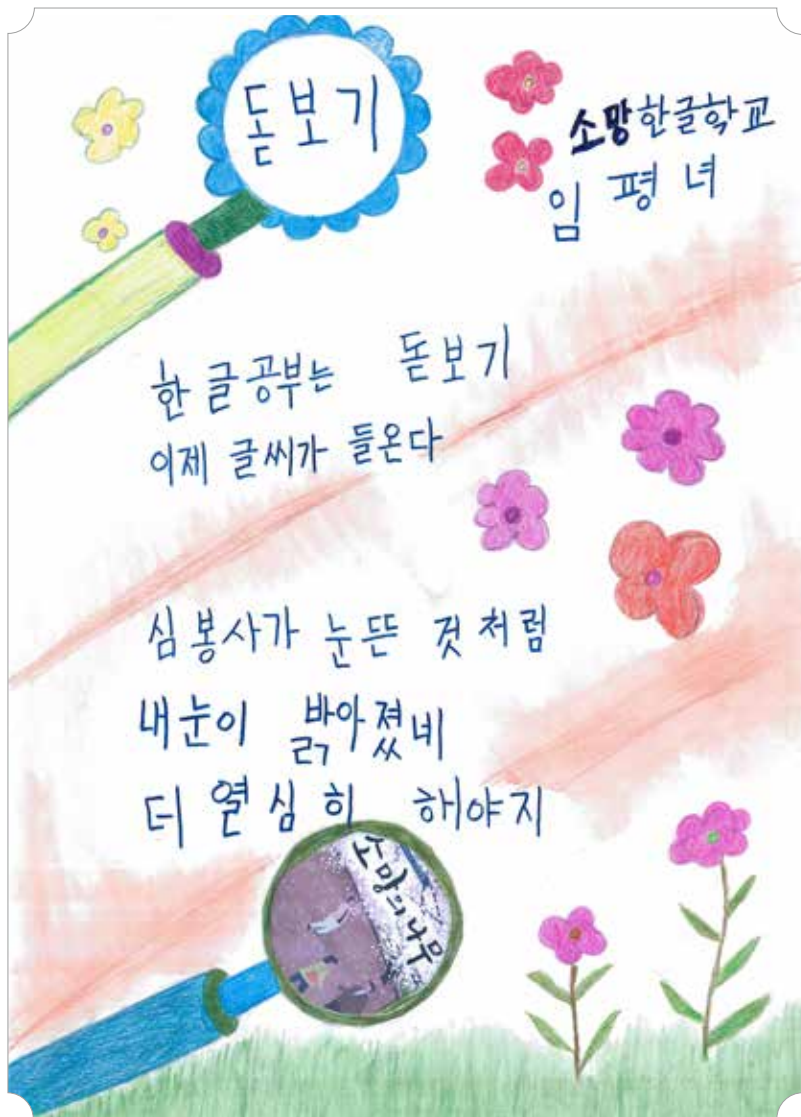 돋보기
소망한글학교
임평녀
한글공부는 돋보기
이제 글씨가 들온다
심봉사가 눈뜬 것처럼
내눈이 밝아졌네
더 열심히 해야지
소망의 나무